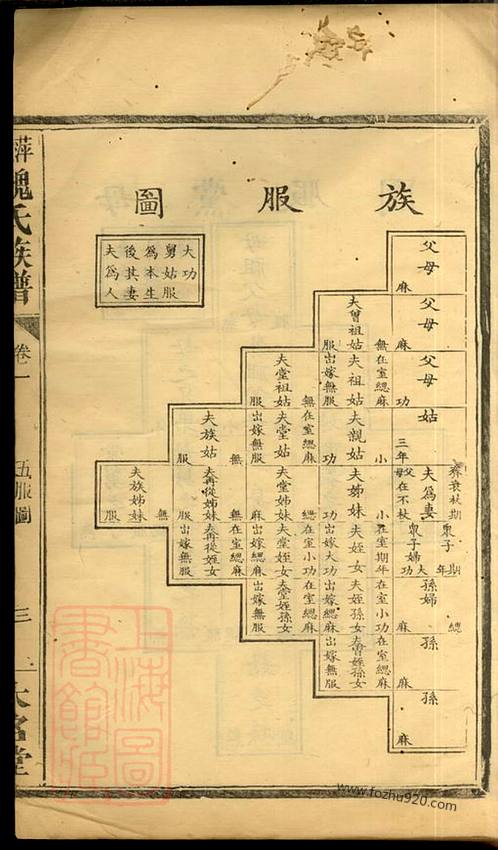 族服圖
大功
舅姑服
為本生
後其妻
夫為人
父母
麻
父母
麻
父母
功
姑
三年
夫為妻
齊衰杖期
父母在不杖
眾子
期年
眾子婦
大功
孫婦
緦麻
孫
麻
孫
麻
夫曾祖姑
無
在室緦麻
出嫁無服
夫祖姑
無服
夫親姑
小功
夫姊妹
小功
在室期年
出嫁大功
夫姪女
在室小功
出嫁緦麻
夫姪孫女
在室緦麻
出嫁無服
夫曾姪孫女
夫堂祖姑
無服
在室緦麻
出嫁無服
夫堂姑
夫堂姊妹
緦麻
在室小功
出嫁緦麻
夫堂姪女
在室緦麻
出嫁無服
夫堂姪孫女
夫族姑
無服
夫再從姊妹
無服
在室緦麻
出嫁無服
夫再從姪女
夫族姊妹
無服
萍魏氏族譜
卷一
五服圖
三
大名堂
上海圖書館藏
www.fozhu920.com